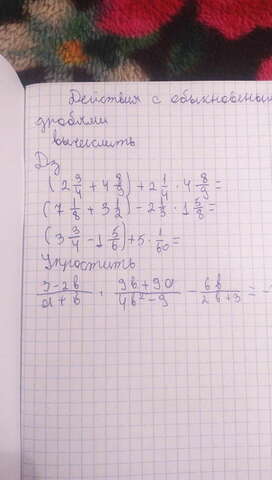 Действия с обыкновенными
дробями
вычислить
Дз
(2 3/4 + 4 8/9) + 2 1/4 · 4 8/9 =
(7 1/8 + 3 1/2) - 2 4/3 · 1 5/8 =
(3 3/4 - 1 5/6) + 5 · 1/60 =
Упростить
3-2b/a+b · 9b+9a/4b²-9 - 6b/2b+3 = -